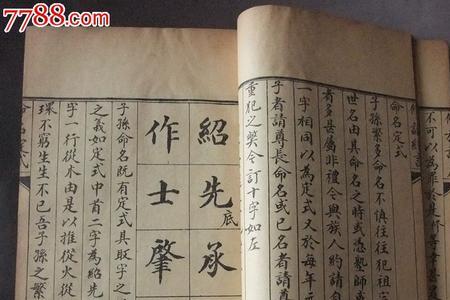 7788.com
不可以為
命名定式
子孫繁多命名不慎往往犯祖字
世名由其命名之時或憑塾師或
者多甚屬非禮今與族人約請命
一字相同以為定式又於每年元
子者請尊長命名或已名者請尊
重犯之獘今訂十字如左
紹先承
底
作士肇
子孫命名既有定式其取字之
之義如定式中首二字為紹先
字一行從木由是以推從火從
環不窮生生不已吾子孫之繁
命名定式